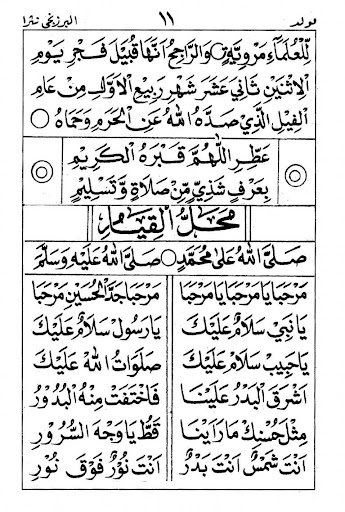 مولد ١١ البرزنجي نثرا
لِّلْعُلَمَآءِ مَرْوِيَّةٍ وَالرَّاجِحُ اَنَّهَا قُبَيْلَ فَجْرِ يَوْمِ
الْاِثْنَيْنِ ثَانِيْ عَشَرَ شَهْرِ رَبِيْعِ الْاَوَّلِ مِنْ عَامِ
الْفِيْلِ الَّذِيْ صَدَّهُ اللهُ عَنِ الْحَرَمِ وَحَمَاهُ
عَطِّرِ اللّٰهُمَّ قَبْرَهُ الْكَرِيْمِ
بِعَرْفٍ شَذِيٍّ مِّنْ صَلَاةٍ وَّتَسْلِيْمٍ
مَحَلُّ الْقِيَامِ
صَلَّى اللهُ عَلٰى مُحَمَّدٍ صَلَّى اللهُ عَلَيْهِ وَسَلَّمَ
مَرْحَبًا يَا مَرْحَبًا يَا مَرْحَبًا مَرْحَبًا جَدَّ الْحُسَيْنِ مَرْحَبًا
يَا نَبِيْ سَلَامٌ عَلَيْكَ يَا رَسُوْلْ سَلَامٌ عَلَيْكَ
يَا حَبِيْبْ سَلَامٌ عَلَيْكَ صَلَوَاتُ اللهْ عَلَيْكَ
اَشْرَقَ الْبَدْرُ عَلَيْنَا فَاخْتَفَتْ مِنْهُ الْبُدُوْرُ
مِثْلَ حُسْنِكْ مَا رَاَيْنَا قَطُّ يَا وَجْهَ السُّرُوْرِ
اَنْتَ شَمْسٌ اَنْتَ بَدْرٌ اَنْتَ نُوْرٌ فَوْقَ نُوْرٍ